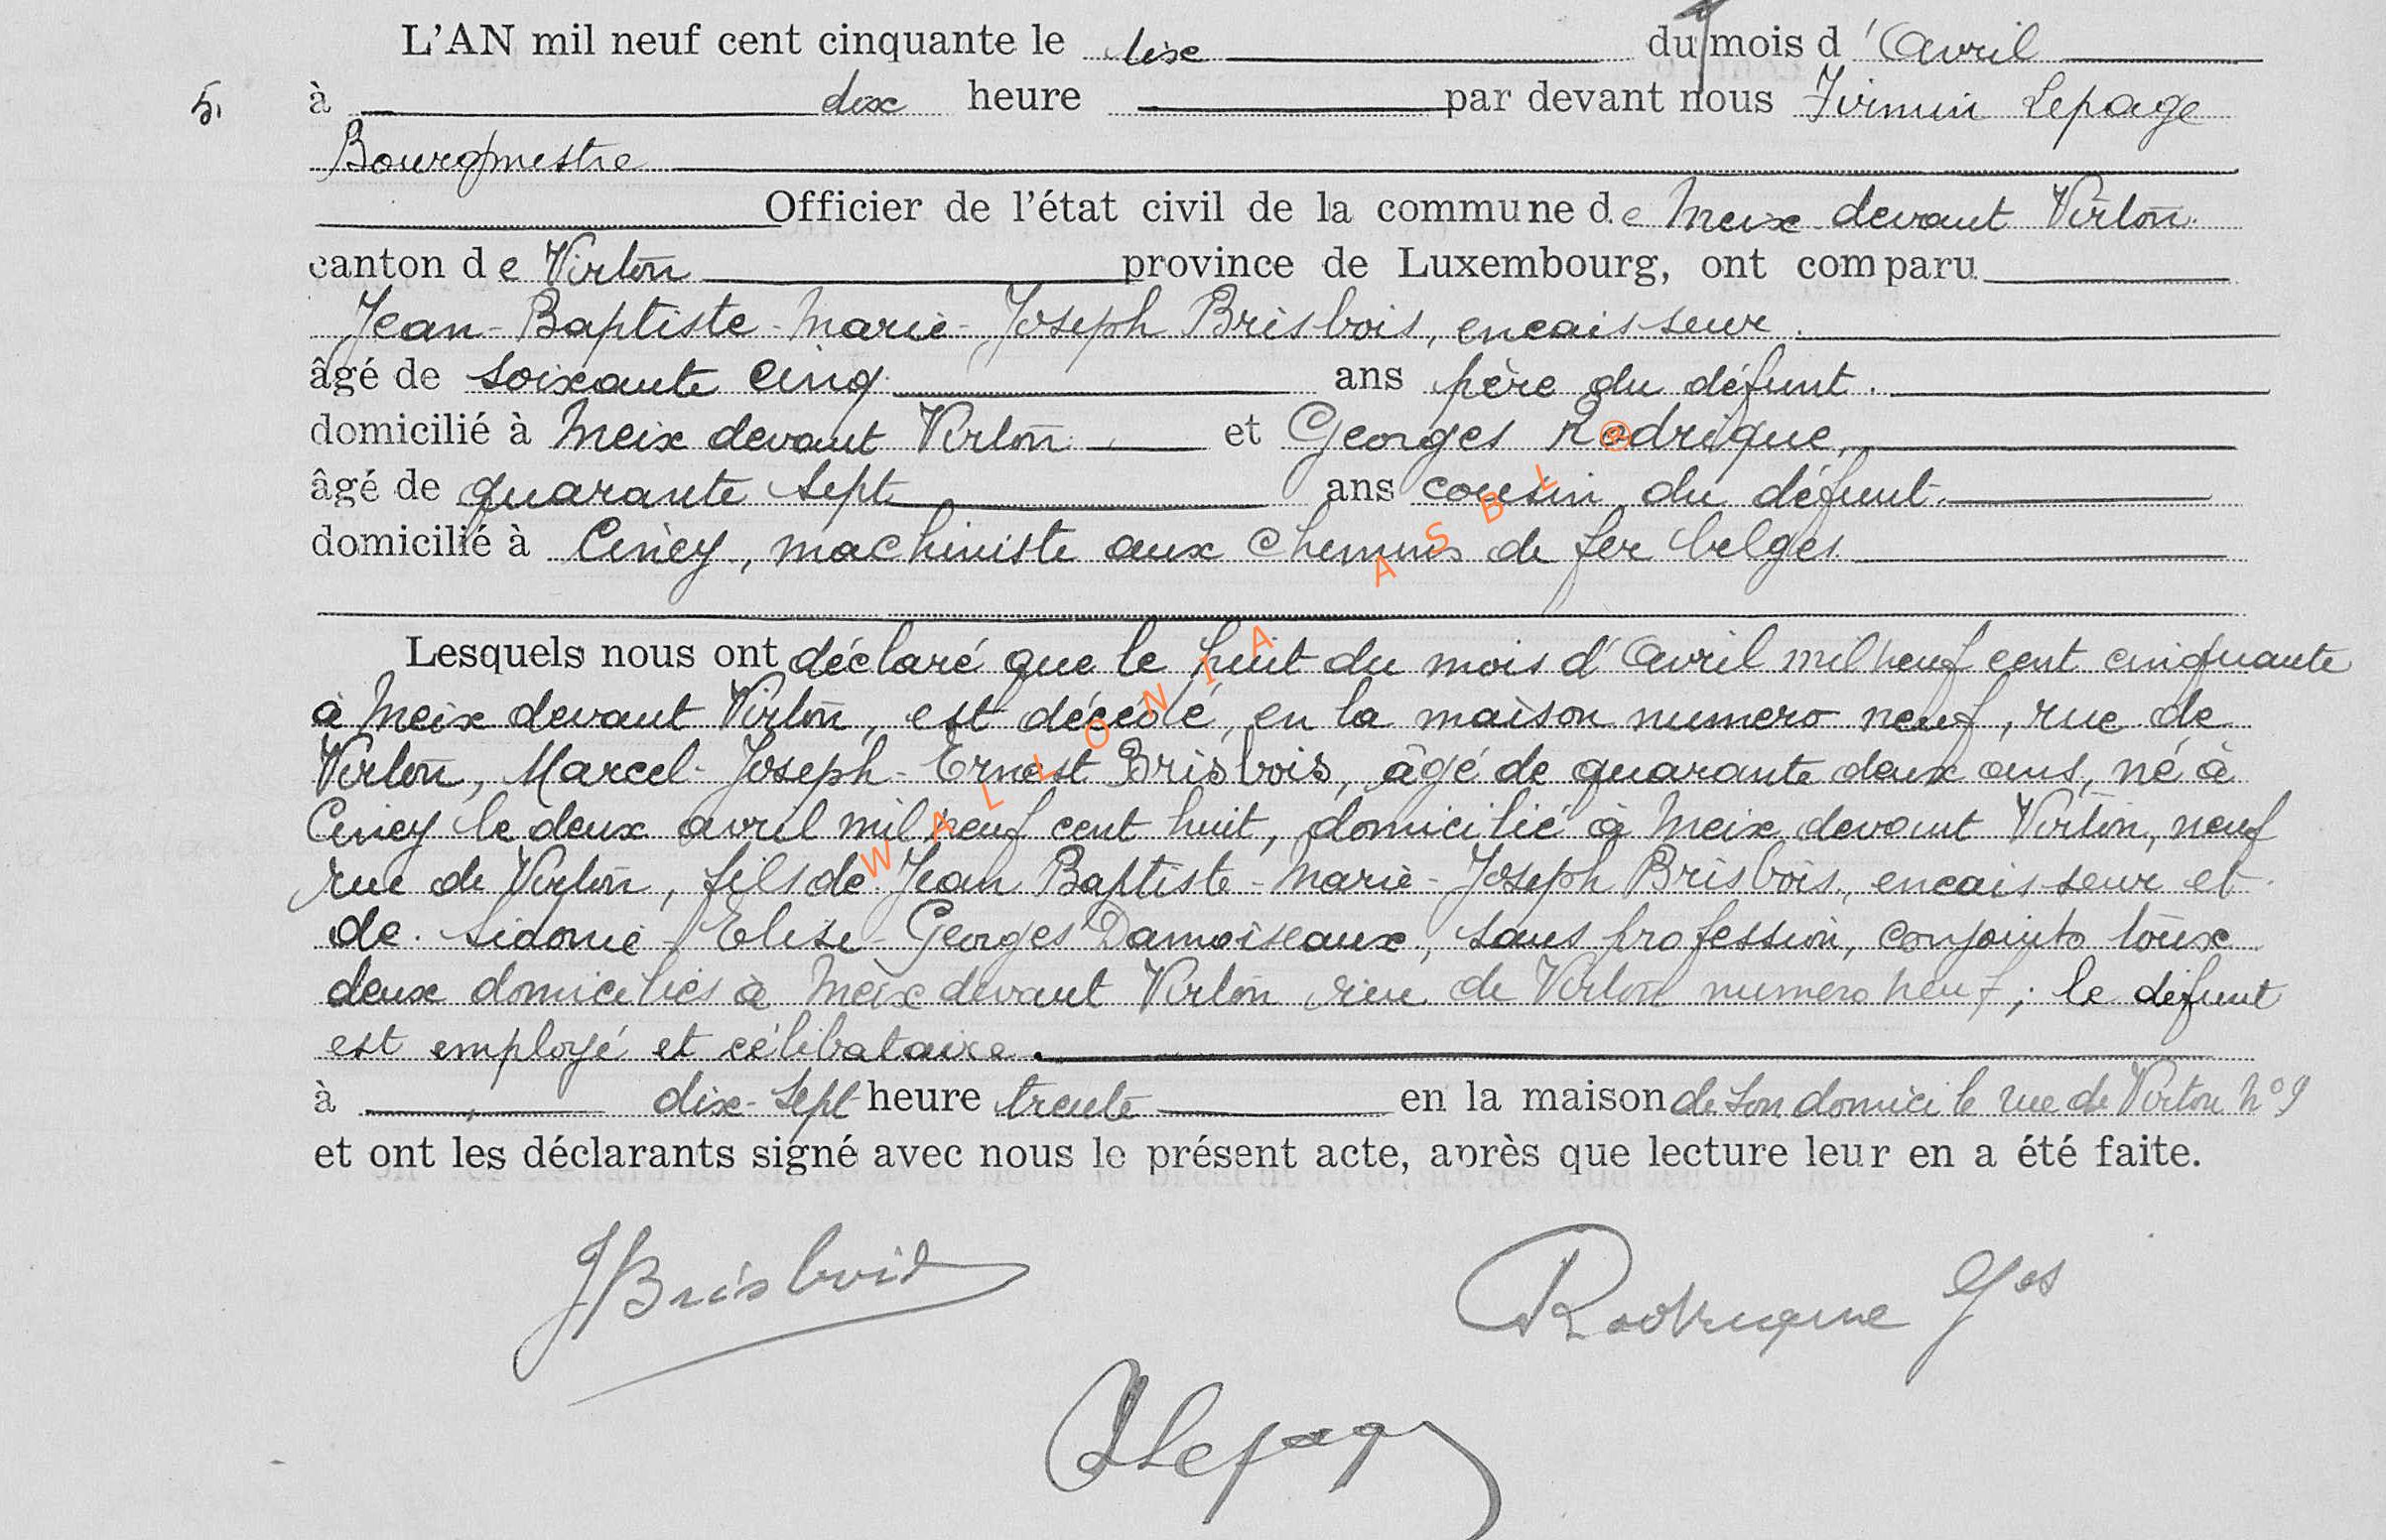 L'AN mil neuf cent cinquante le dix du mois d'Avril
5. à dix heure par devant nous Firmin Lepage
Bourgmestre
Officier de l'état civil de la commune de Meix devant Virton
canton de Virton province de Luxembourg, ont comparu
Jean-Baptiste-Marie-Joseph Brisbois, encaisseur.
âgé de soixante cinq ans père du défunt.
domicilié à Meix devant Virton et Georges Rodrique,
âgé de quarante sept ans cousin du défunt.
domicilié à Ciney, machiniste aux chemins de fer belges
Lesquels nous ont déclaré que le huit du mois d'Avril mil neuf cent cinquante
à Meix devant Virton, est décédé, en la maison numero neuf, rue de
Virton, Marcel-Joseph-Ernest Brisbois, âgé de quarante deux ans, né à
Ciney le deux avril mil neuf cent huit, domicilié à Meix devant Virton, neuf
rue de Virton, fils de Jean Baptiste-Marie-Joseph Brisbois, encaisseur et
de Sidonie-Elise-Georges Damoiseaux, sans profession, conjoints tous
deux domiciliés à Meix devant Virton rue de Virton numero neuf; le défunt
est employé et célibataire.
à dix-sept heure trente en la maison de son domicile rue de Virton n° 9
et ont les déclarants signé avec nous le présent acte, après que lecture leur en a été faite.
JBrisbois
Rodrique Ges
Lepage
WALLONIA ASBL @